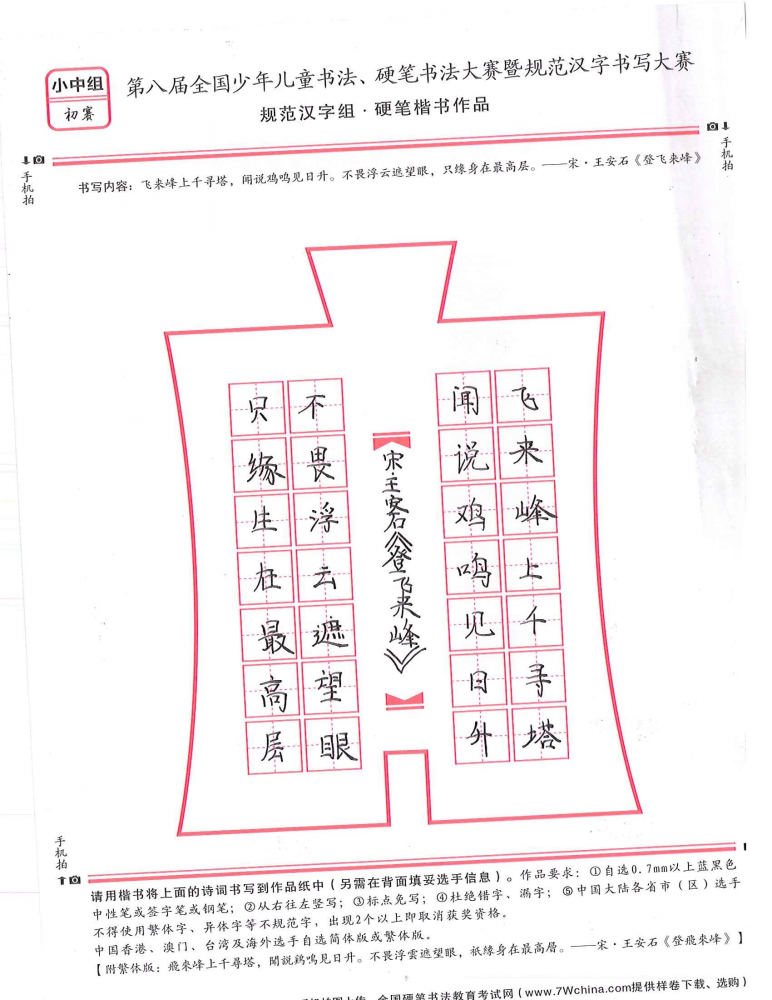 小中组
初赛
第八届全国少年儿童书法、硬笔书法大赛暨规范汉字书写大赛
规范汉字组·硬笔楷书作品
手机拍
手机拍
书写内容：飞来峰上千寻塔，闻说鸡鸣见日升。不畏浮云遮望眼，只缘身在最高层。——宋·王安石《登飞来峰》
飞来峰上千寻塔
闻说鸡鸣见日升
宋·王安石《登飞来峰》
不畏浮云遮望眼
只缘生在最高层
手机拍
请用楷书将上面的诗词书写到作品纸中（另需在背面填妥选手信息）。作品要求：①自选0.7mm以上蓝黑色
中性笔或签字笔或钢笔；②从右往左竖写；③标点免写；④杜绝错字、漏字；⑤中国大陆各省市（区）选手
不得使用繁体字、异体字等不规范字，出现2个以上即取消获奖资格。
中国香港、澳门、台湾及海外选手自选简体版或繁体版。
【附繁体版：飛來峰上千尋塔，聞説鷄鳴見日升。不畏浮雲遮望眼，衹緣身在最高層。——宋·王安石《登飛來峰》】
全国硬笔书法教育考试网（www.7Wchina.com提供样卷下载、选购）